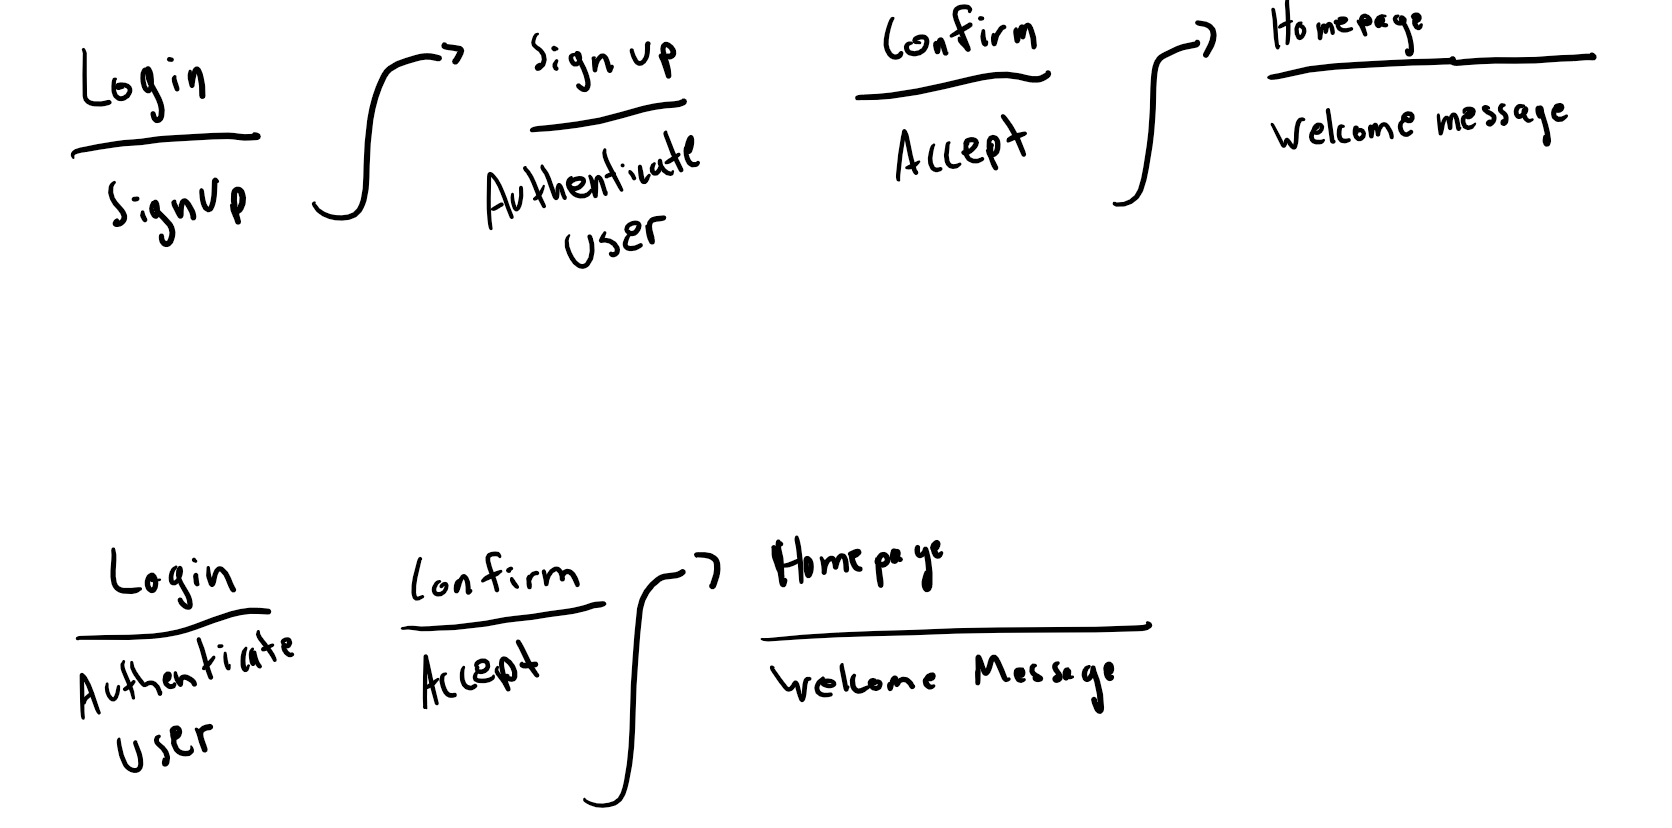 Login
Sign Up
Sign up
Authenticate
user
Confirm
Accept
Homepage
Welcome message
Login
Authenticate
user
Confirm
Accept
Homepage
Welcome Message